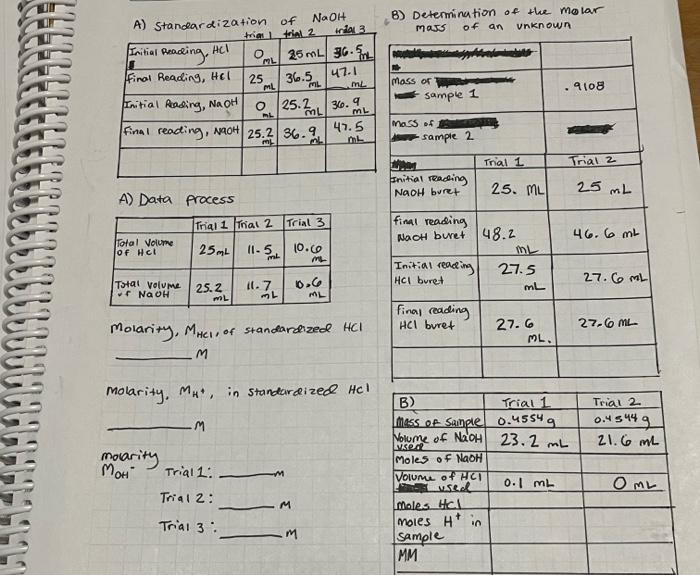 A) Standardization of NaOH
trial 1 trial 2 trial 3
Initial Reading, HCl 0 mL 25 mL 36.5 mL
Final Reading, HCl 25 mL 36.5 mL 47.1 mL
Initial Reading, NaOH 0 mL 25.2 mL 36.9 mL
Final reading, NaOH 25.2 mL 36.9 mL 47.5 mL
A) Data Process
Trial 1 Trial 2 Trial 3
Total Volume of HCl 25 mL 11.5 mL 10.6 mL
Total volume of NaOH 25.2 mL 11.7 mL 10.6 mL
Molarity, MHCl, of standardized HCl
M
Molarity, MH+, in standardized HCl
M
molarity
MOH- Trial 1: M
Trial 2: M
Trial 3: M
B) Determination of the molar
mass of an unknown
mass of
sample 1 .9108
mass of
sample 2
Trial 1 Trial 2
Initial reading
NaOH buret 25. mL 25 mL
final reading
NaOH buret 48.2 mL 46.6 mL
Initial reading
HCl buret 27.5 mL 27.6 mL
final reading
HCl buret 27.6 mL. 27.6 mL
B) Trial 1 Trial 2
Mass of Sample 0.4554 g 0.4544 g
Volume of NaOH used 23.2 mL 21.6 mL
Moles of NaOH
Volume of HCl
used 0.1 mL 0 mL
moles HCl
moles H+ in
sample
MM